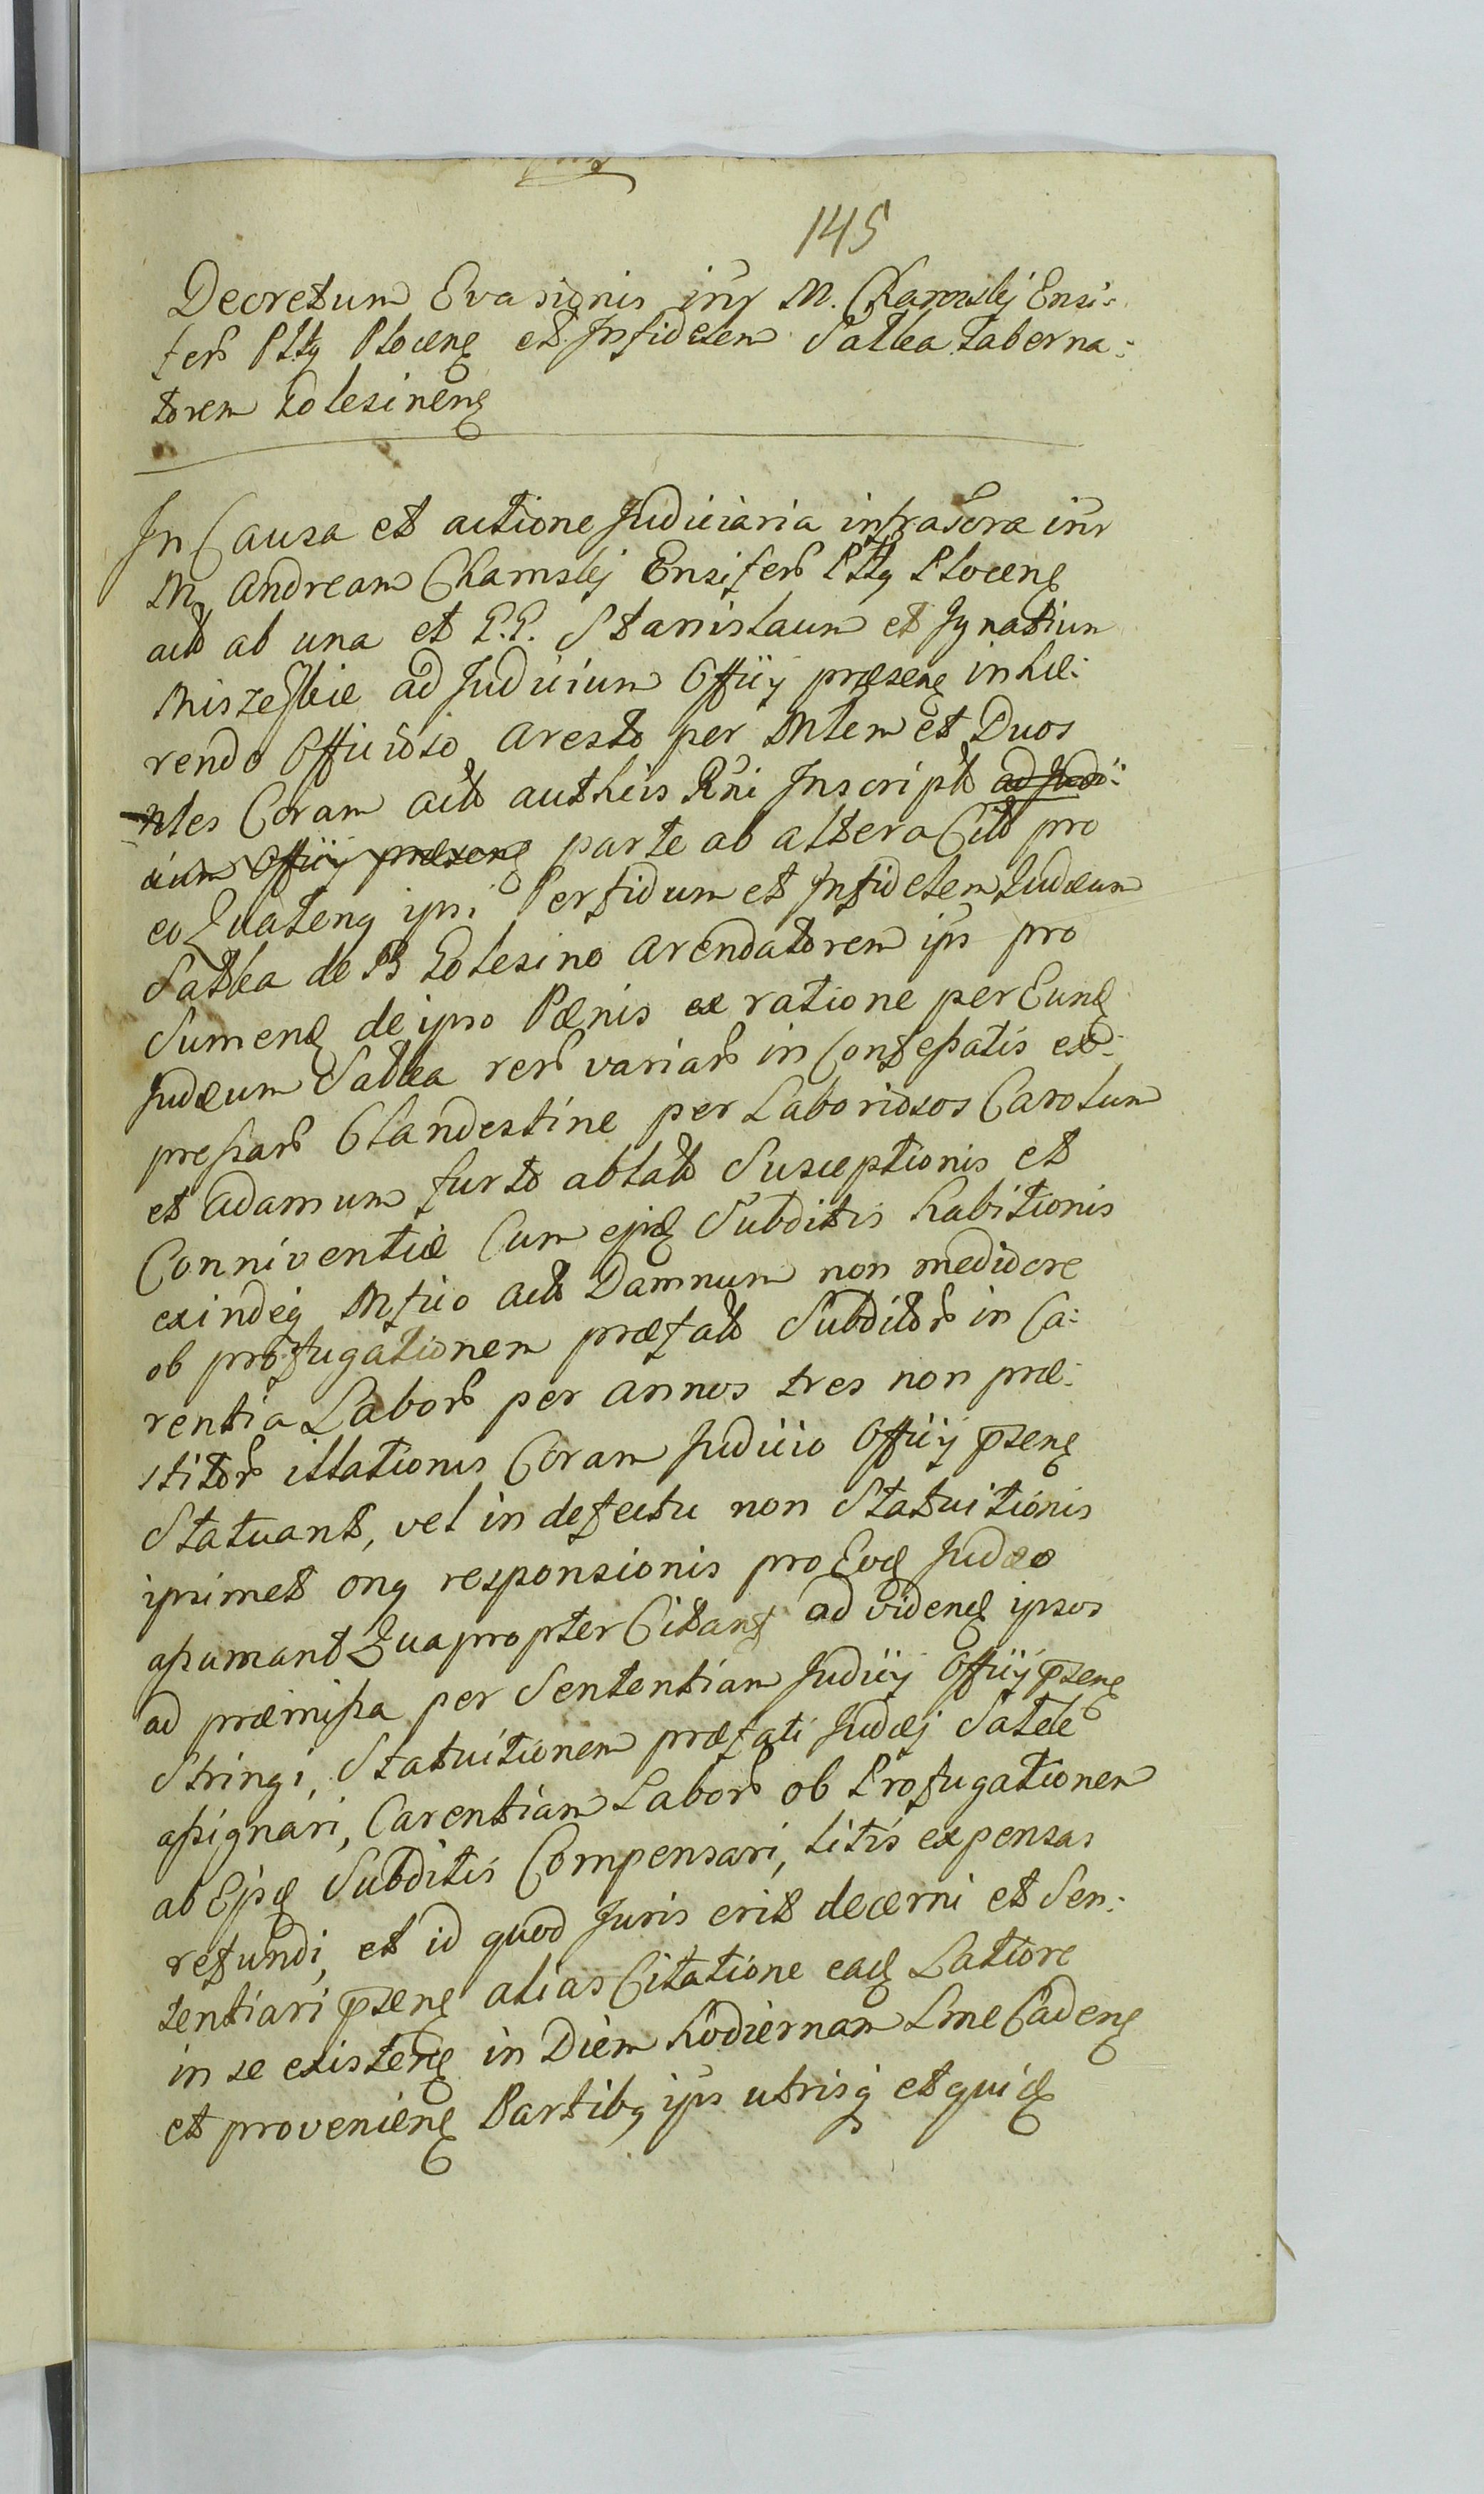 145
Decretum Evasionis inr M. Chamskj Ensi:
ferũ Pltg Plocenę et Infidelem Satka taberna:
torem Kolesinenę
In Causa et actione Judiciaria infrascra inr
M. Andream Chamskj Ensiferũ Pltg Plocenę
actõ ab una et P.P. Stanislaum et Ignatium
Miszesskie ad Judicium Officij præsenę inhæ:
rendo Officioso Aresto per Mlem et Duos
Nles Coram actõ authcis Rni Inscriptõ ad Judi:
cium Officij præsenę parte ab altera Citõ pro
eo Quateng ipsi Perfidum et Infidelem Judæum
Satka de B Kolesino Arendatorem ips pro
Sumenę de ipso Pænis ex ratione per Eunę
Judæum Satka rerũ variarũ in Confessatis ex:
pressarũ Clandestine per Laboriosos Carolum
et Adamum furto ablatõ Susceptionis et
Conniventiæ Cum ejsdę Subditis habitionis
exindeq Mfico actõ Damnum non mediocre
ob profugationem præfatõ Subditorũ in Ca:
rentia Laborũ per annos tres non præ:
stitorũ illationis Coram Judicio Officij pzenę
Statuant, vel in defectu non Statuitionis
ipsimet ong responsionis pro Eodę Judæo
assumant Quapropter Citanę ad videnę ipsos
ad præmissa per Sententiam Judicij Officij pzenę
Stringi, Statuitionem præfati Judæj Satkę
assignari, Carentiam Laborũ ob Profugationem
ab Ejsdę Subditis Compensari, litis expensas
refundi, et id quod Juris erit decerni et Sen:
tentiari pzenę alias Citatione eadę Latiore
in se existenę in Diem hodiernam Lme Cadenę
et provenienę Partibg ips utrisq et quidę